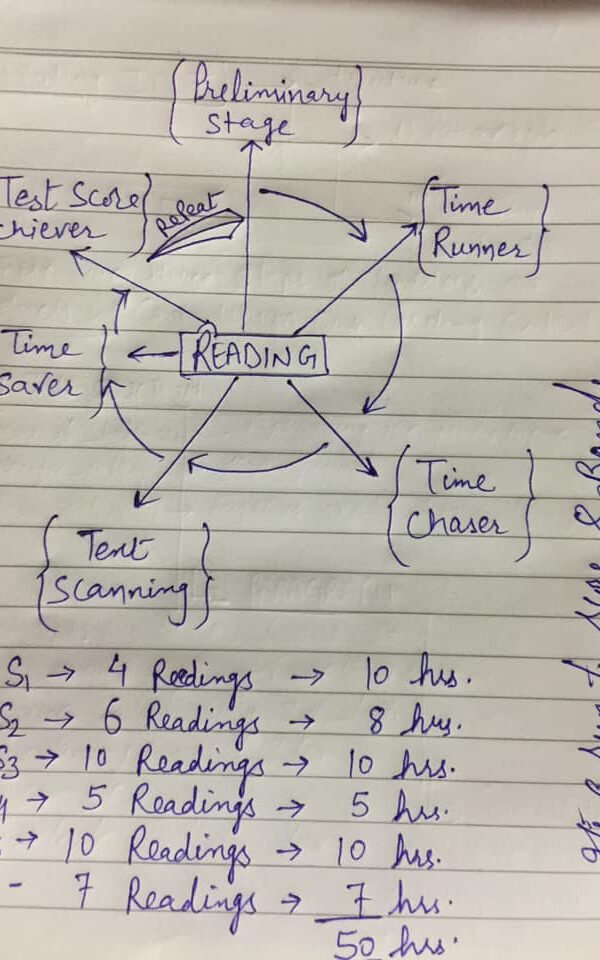 {Preliminary
Stage}
Test Score}
chiever
Repeat
{Time
Runner}
READING
Time}
Saver
{Time
Chaser}
{Text
Scanning}
S1 → 4 Readings → 10 hrs.
S2 → 6 Readings → 8 hrs.
S3 → 10 Readings → 10 hrs.
4 → 5 Readings → 5 hrs.
→ 10 Readings → 10 hrs.
- 7 Readings → 7 hrs.
50 hrs.
Band